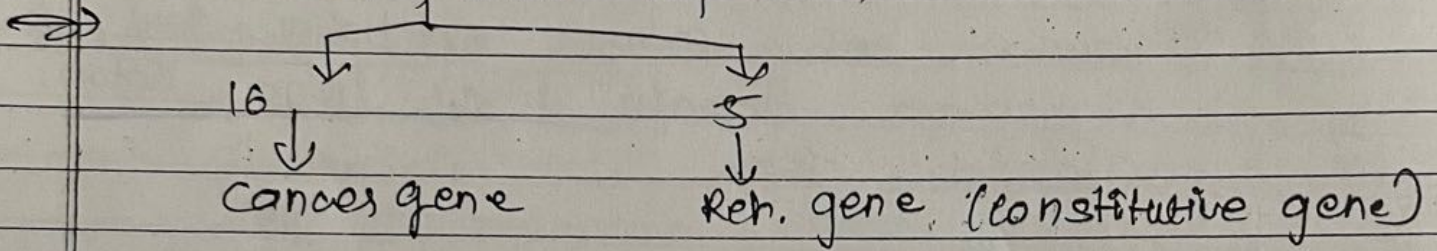 16 5
Cancer gene Ref. gene. (constitutive gene)